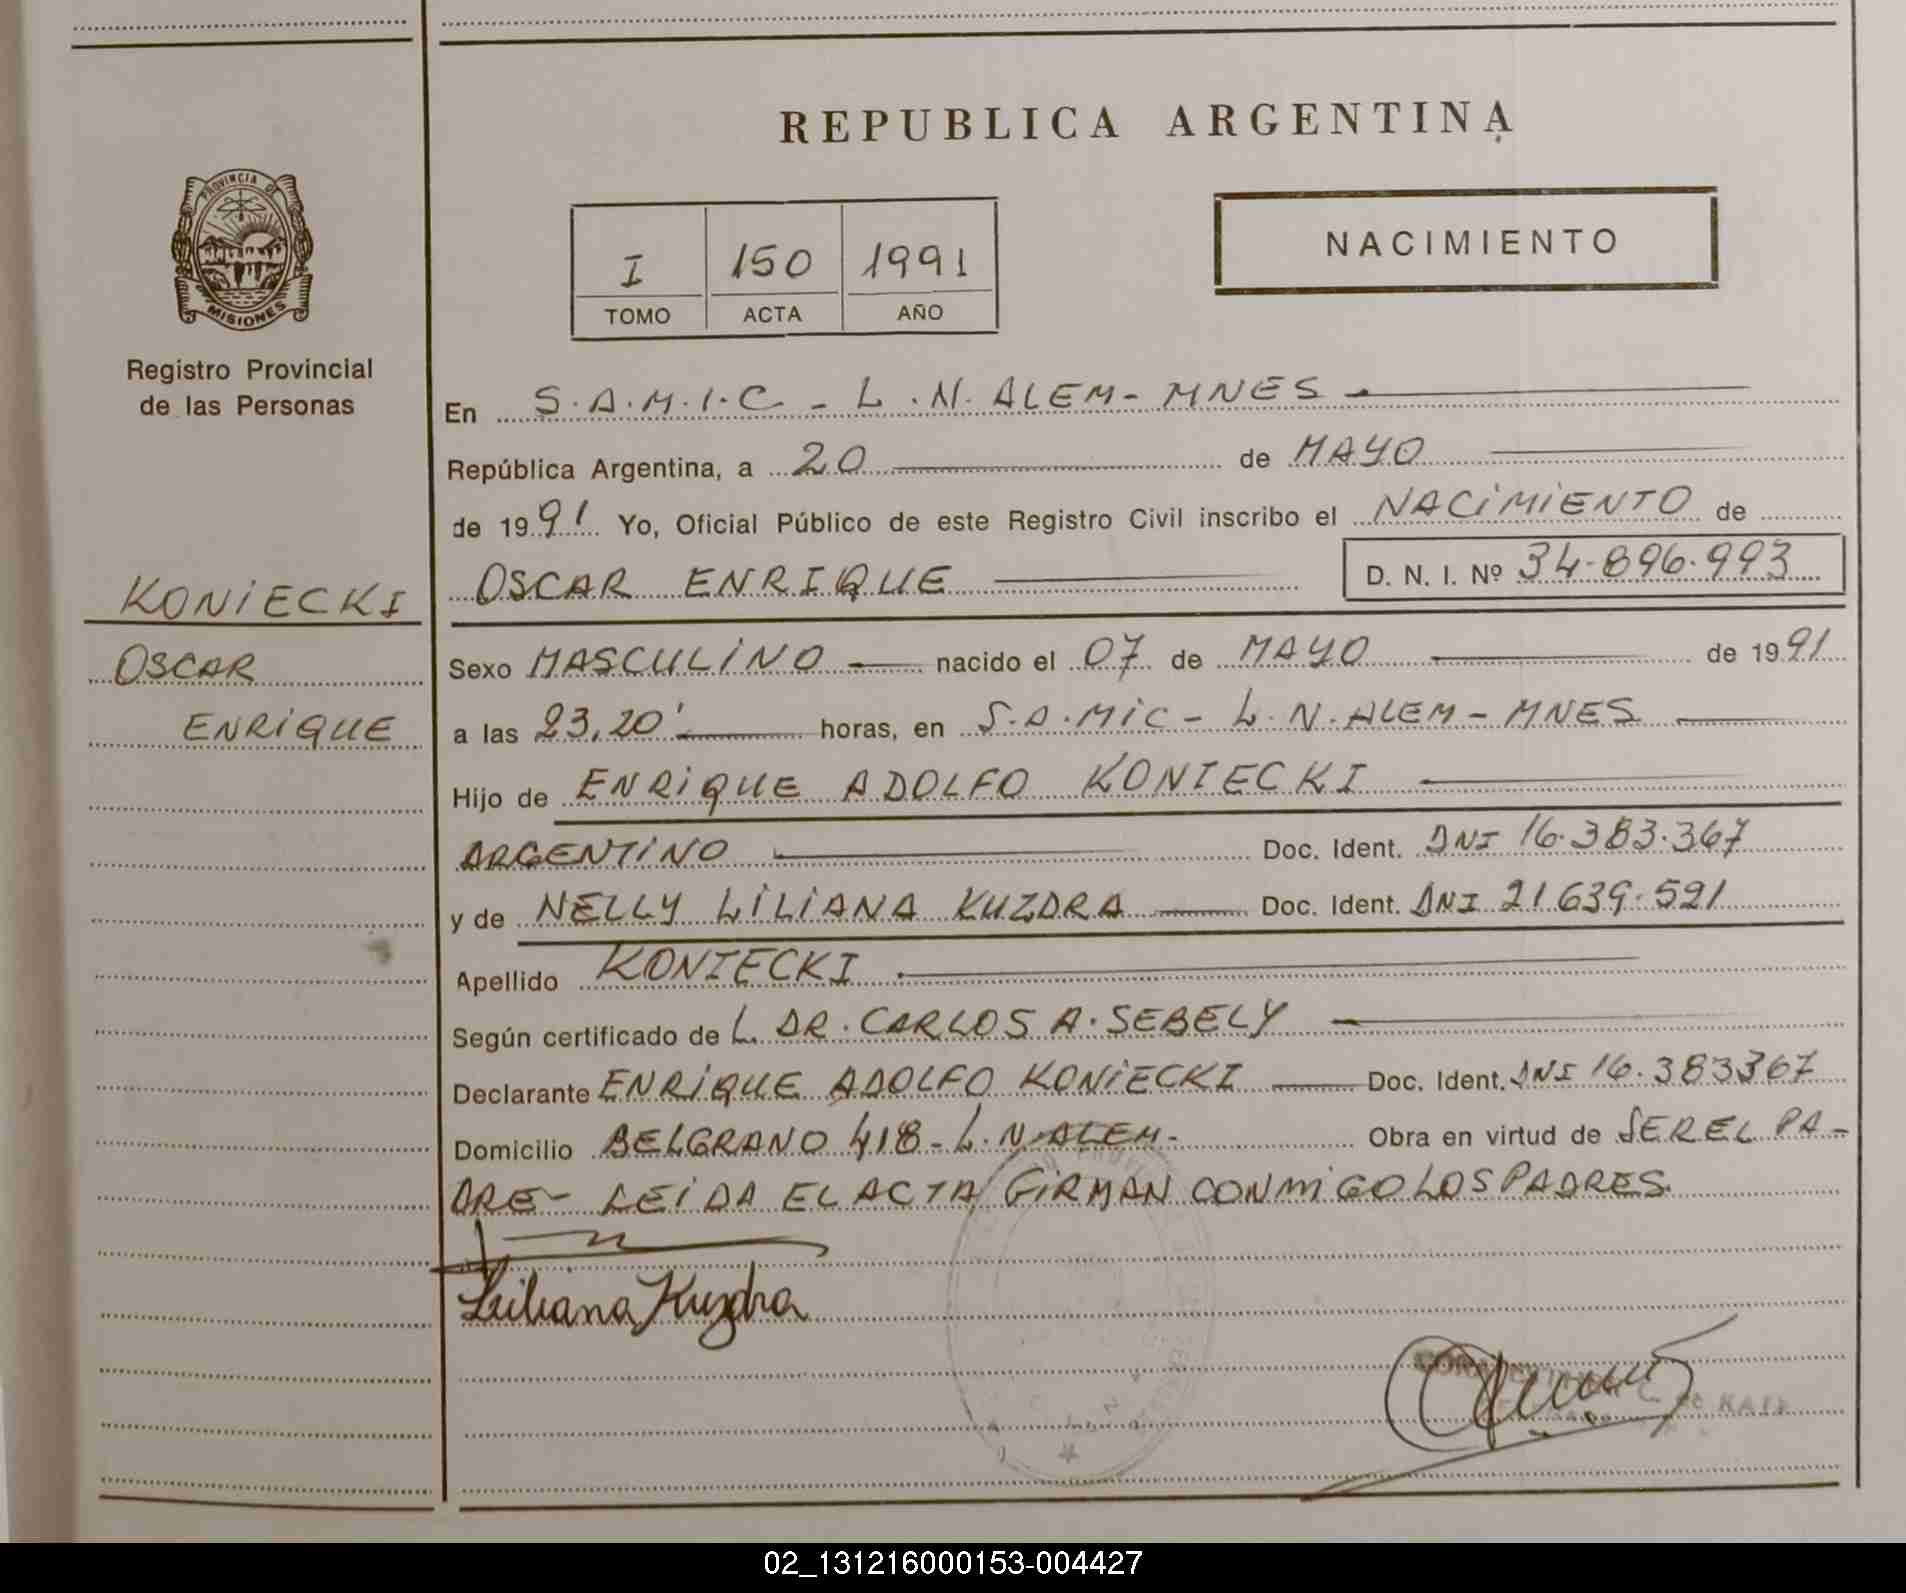 REPUBLICA ARGENTINA
PROVINCIA DE
MISIONES
Registro Provincial
de las Personas
I 150 1991
TOMO ACTA AÑO
NACIMIENTO
En S.A.M.I.C - L.N. ALEM - MNES
República Argentina, a 20 de MAYO
de 1991 Yo, Oficial Público de este Registro Civil inscribo el NACIMIENTO de
OSCAR ENRIQUE D. N. I. Nº 34.896.993
KONIECKI
OSCAR
ENRIQUE
Sexo MASCULINO nacido el 07 de MAYO de 1991
a las 23,20' horas, en S.A.MIC - L.N. ALEM - MNES
Hijo de ENRIQUE ADOLFO KONIECKI
ARGENTINO Doc. Ident. DNI 16.383.367
y de NELLY LILIANA KUZDRA Doc. Ident. DNI 21639.591
Apellido KONIECKI
Según certificado de L DR. CARLOS A. SEBELY
Declarante ENRIQUE ADOLFO KONIECKI Doc. Ident. DNI 16.383367
Domicilio BELGRANO 418 - L.N. ALEM - Obra en virtud de SER EL PA-
DRE - LEIDA EL ACTA FIRMAN CONMIGO LOS PADRES.
Liliana Kuzdra
02_131216000153-004427